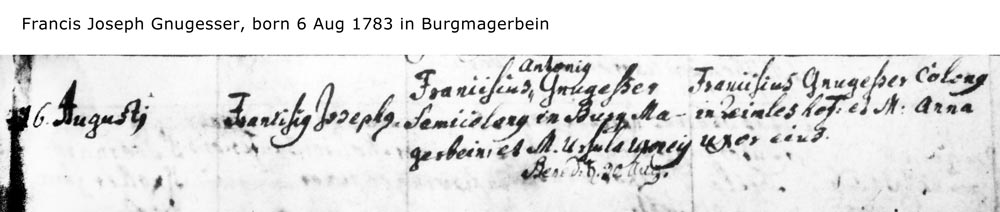 Francis Joseph Gnugesser, born 6 Aug 1783 in Burgmagerbein
6. Augusti
Franciscg Josephg.
Antonig
Franciscus, Gnugesser
Semicolang in Burg Ma-
gerbein; et M. Ursula uxor eig
20 Aug.
Franciscus Gnugesser Colong
in et M: Anna
uxor eius.